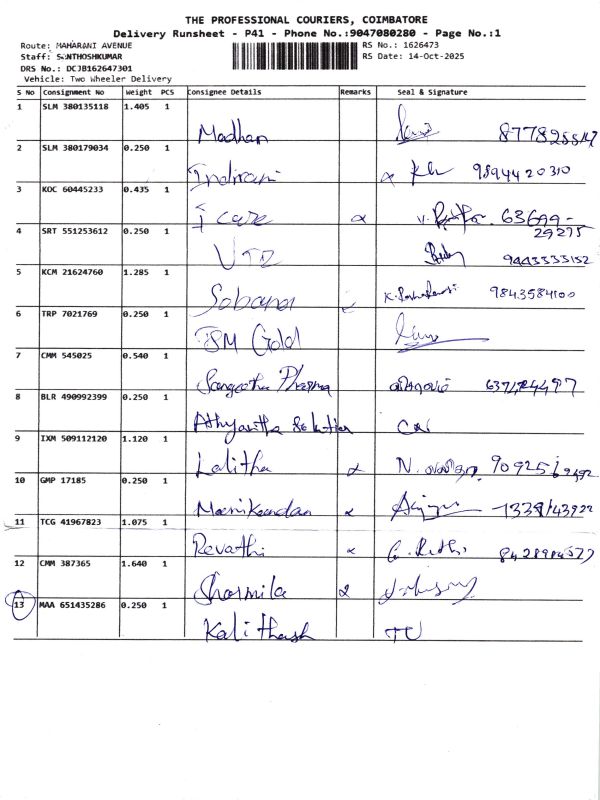 THE PROFESSIONAL COURIERS, COIMBATORE
Delivery Runsheet - P41 - Phone No.:9047080280 - Page No.:1
Route: MAHARANI AVENUE
RS No.: 1626473
Staff: SANTHOSHKUMAR
RS Date: 14-Oct-2025
DRS No.: DCJB162647301
Vehicle: Two Wheeler Delivery
S No Consignment No Weight PCS Consignee Details Remarks Seal & Signature
1 SLM 380135118 1.405 1
Madhan
2 SLM 380179034 0.250 1
Indirani 9894420310
3 KOC 60445233 0.435 1
i care 63699-
29275
4 SRT 551253612 0.250 1
VTZ 9443333152
5 KCM 21624760 1.285 1
Sobana 9843584100
6 TRP 7021769 0.250 1
JSM Gold
7 CMM 545025 0.540 1
Sangeetha Pharma
8 BLR 490992399 0.250 1
9 IXM 509112120 1.120 1
Lalitha
10 GMP 17185 0.250 1
Manikandan
11 TCG 41967823 1.075 1
Revathi
12 CMM 387365 1.640 1
Sharmila
13 MAA 651435286 0.250 1